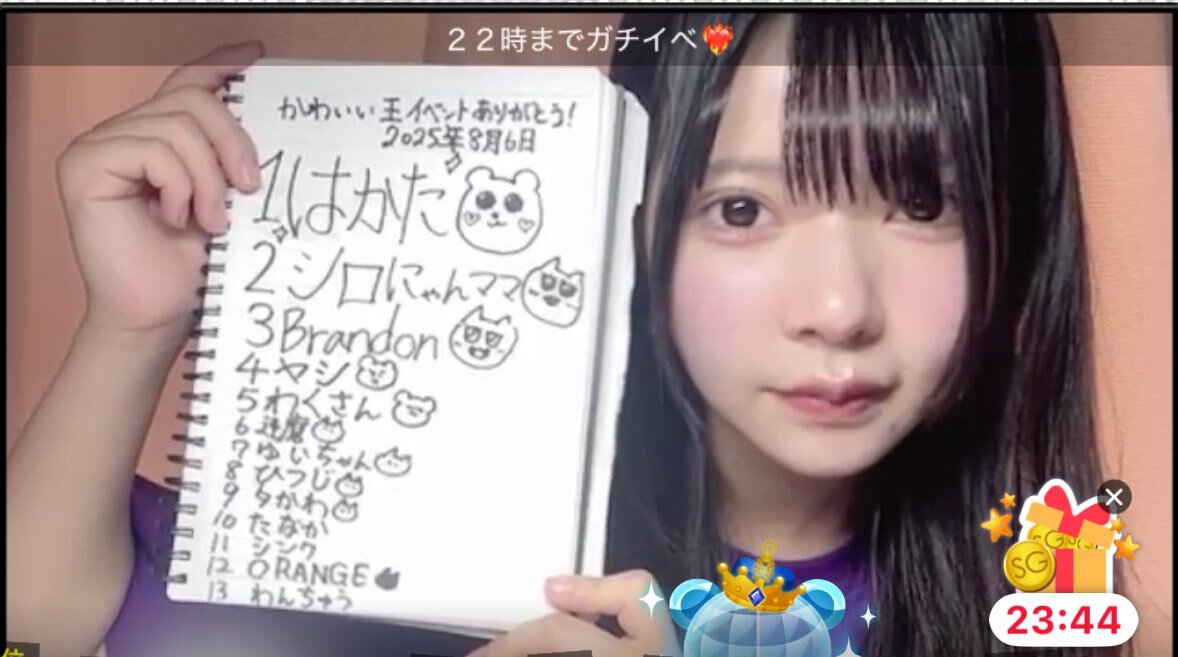 ２２時までガチイベ❤️‍🔥
かわいい王イベントありがとう!
2025年8月6日
1はかた
2シロにゃんママ
3Brandon
4ヤシ
5わくさん
6達磨
7ゆいちゃん
8ひつじ
9夕かわ
10たなか
11シンク
12 ORANGE
13 わんちゅう
SG
SG
23:44
位